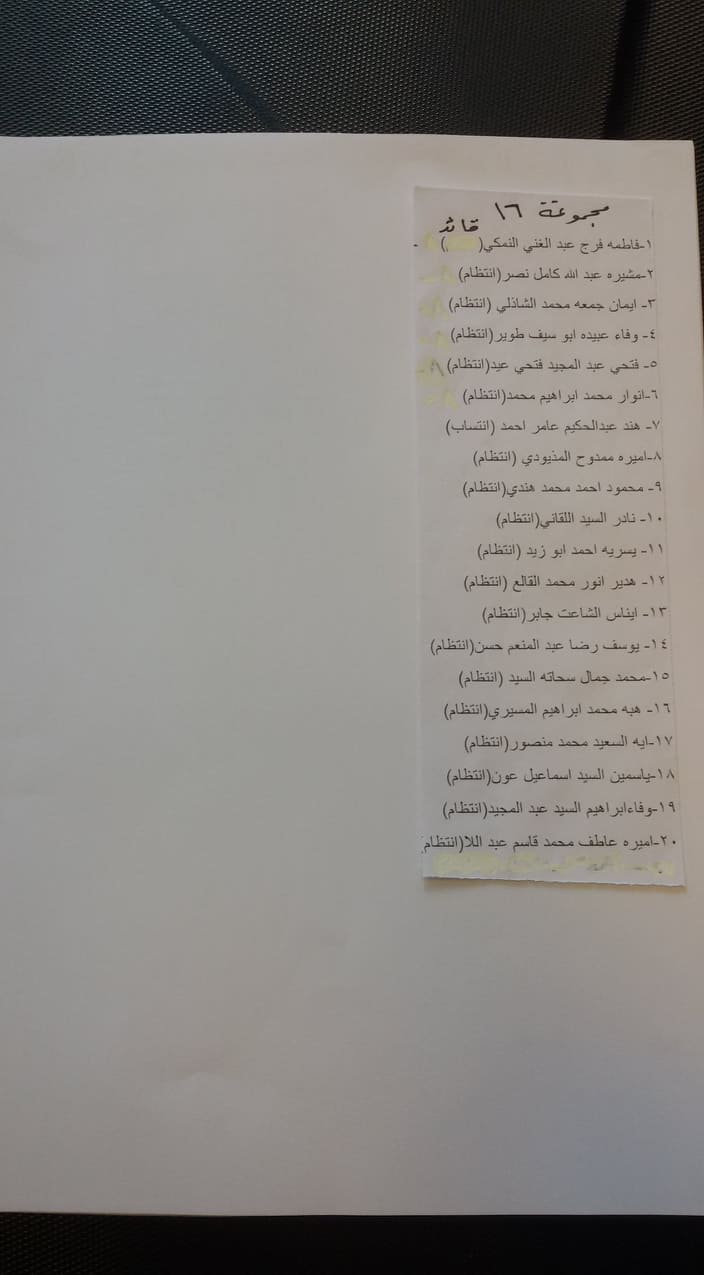 مجموعة ١٦
قائد
١-فاطمه فرج عبد الغني النمكي( )
٢-مشيره عبد الله كامل نصر(انتظام)
٣- ايمان جمعه محمد الشاذلي (انتظام)
٤- وفاء عبيده ابو سيف طوير(انتظام)
٥- فتحي عبد المجيد فتحي عيد(انتظام)
٦-انوار محمد ابراهيم محمد(انتظام)
٧- هند عبدالحكيم عامر احمد (انتساب)
٨-اميره ممدوح المذيودي (انتظام)
٩- محمود احمد محمد هندي(انتظام)
١٠- نادر السيد اللقاني(انتظام)
١١- يسريه احمد ابو زيد (انتظام)
١٢- هدير انور محمد القالع (انتظام)
١٣- ايناس الشاعت جابر(انتظام)
١٤- يوسف رضا عبد المنعم حسن(انتظام)
١٥-محمد جمال سحاته السيد (انتظام)
١٦- هبه محمد ابراهيم المسيري(انتظام)
١٧-ايه السعيد محمد منصور(انتظام)
١٨-ياسمين السيد اسماعيل عون(انتظام)
١٩-وفاءابراهيم السيد عبد المجيد(انتظام)
٢٠-اميره عاطف محمد قاسم عبد اللا(انتظام